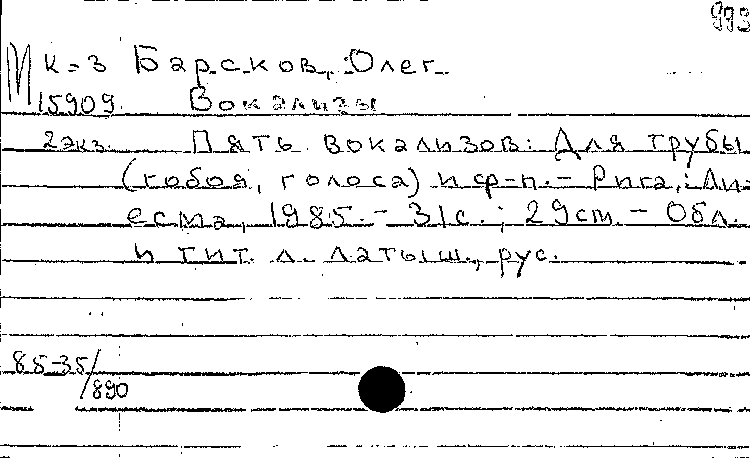 993
М к-3 Барсков, Олег
15909 Вокализы
2экз. Пять вокализов: Для трубы
(гобоя, голоса) и ф-п. - Рига,: Ли-
есма, 1985. - 31с.; 29см. - Обл.
и тит. л. латыш., рус.
85-35/
890